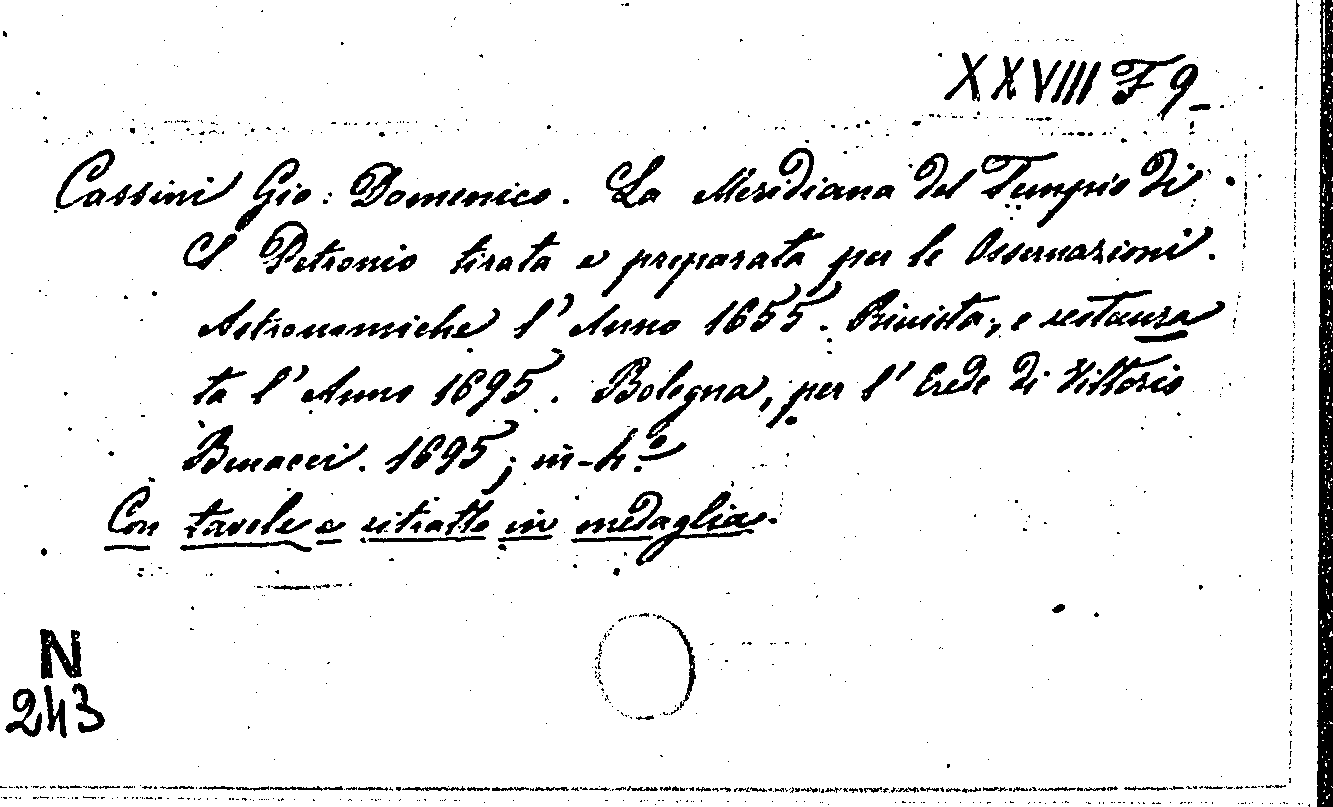 XXVIII F 9
Cassini Gio: Domenico. La Meridiana del Tempio di
S. Petronio tirata e preparata per le Osservazioni
Astronomiche l'Anno 1655. Rivista, e restaura
ta l'Anno 1695. Bologna, per l'Erede di Vittorio
Benacci. 1695; in-4.º
Con tavole e ritratto in medaglia.
N
243